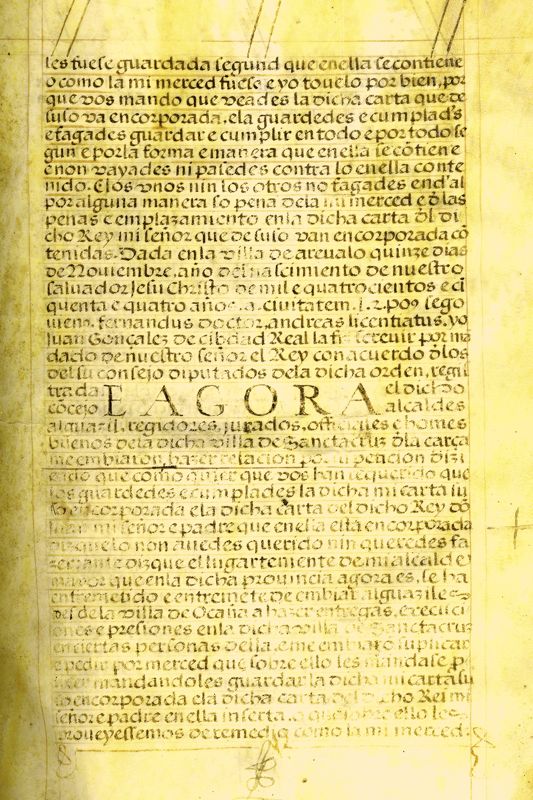 les fuese guardada segund que enella se contiene
o como la mi merced fuese e yo tovelo por bien, por
que vos mando que veades la dicha carta que de
suso va encorporada, ela guardedes e cumplades
e fagades guardar e cumplir en todo e por todo se
gun e por la forma e manera que en ella se cōtiene
e non vayades ni pasedes contra lo enella conte
nido. E los vnos nin los otros no fagades end'al
por alguna manera so pena dela mi merced e đlas
penas e emplazamiento enla dicha carta đl di
cho Rey mi señor que de suso van encorporada cō
tenidas. Dada enla villa de arevalo quinze dias
de Noviembre, año del nascimiento de nuestro
salvador Jesu Christo de mil e quatrocientos e ci
quenta e quatro años. a. civitatem. sego
viem. fernandus doctor, andreas licentiatus, yo
Juan Gonçalez de cibdad Real la fiz screvir por mā
dado de nuestro señor el Rey con acuerdo đlos
del su consejo diputados dela dicha orden, regis
trada. E AGORA el dicho
cōcejo alcaldes
alguazil, regidores, jurados, officiales e homes
buenos dela dicha villa de Sanctacruz đla carça
me embiaron hazer relacion por su peticion dizi
endo que como quier que vos han requerido que
los guardedes e cumplades la dicha mi carta su
so encorporada e la dicha carta del dicho Rey dō
Juan mi señor e padre que en ella esta encorporada
dizque lo non avedes querido nin queredes fa
zer ante dizque el lugarteniente de mi alcalde
mayor que enla dicha provincia agora es, le ha
entremetido e entremete de embiar alguazile
de la villa de Ocaña a hazer entregas, execuci
ones e presiones enla dicha villa de Sanctacruz
en ciertas personas della, e me embiaro suplicar
e pedir por merced que sobre ello les mandase p
veer mandandoles guardar la dicha mi carta su
so encorporada e la dicha carta del dicho Rei mi
señor e padre en ella inserta, o que sobre ello les
proveyessemos de remedio como la mi merced